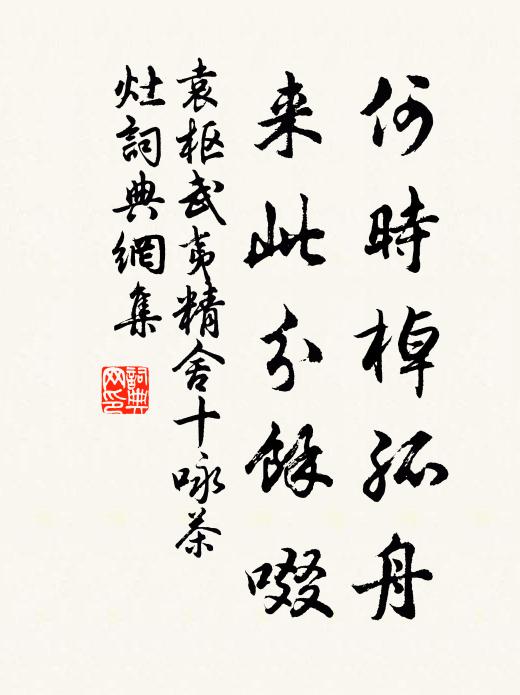 何時棹孤舟
来此分餘啜
袁枢武夷精舍十咏茶
灶詞典網集
詞典
网印